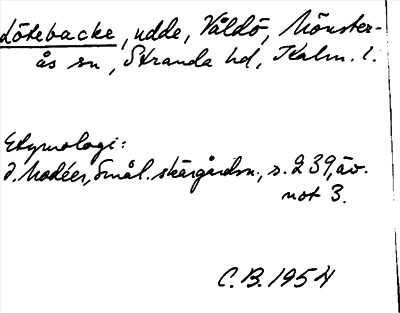 Lötebacke, udde, Våldö, Mönster-
ås sn, Stranda hd, Kalm. l.
Etymologi:
I. Modéer, Smål. skärgårdsn., s. 239, äv.
not 3.
C.B. 1954